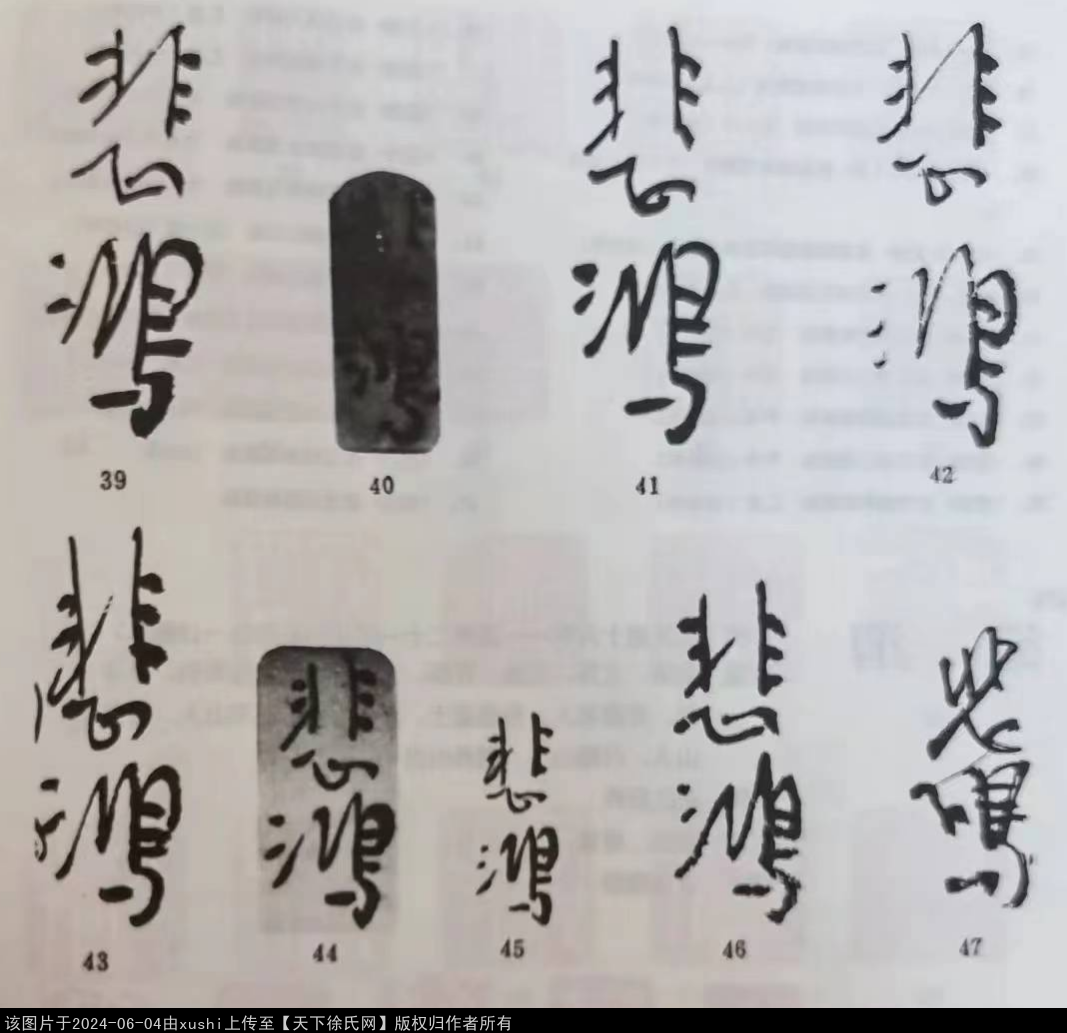 悲鸿
39
40
悲鸿
41
悲鸿
42
悲鸿
43
悲鸿
44
悲鸿
45
悲鸿
46
悲鸿
47
该图片于2024-06-04由xushi上传至【天下徐氏网】版权归作者所有